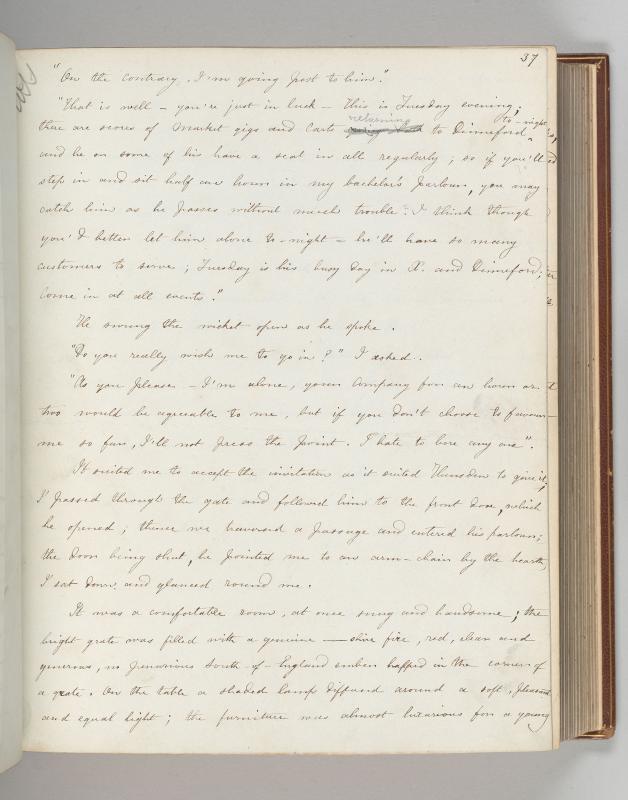 37
"On the contrary, I'm going post to him."
"That is well – you're just in luck – this is Tuesday evening;
there are scores of market gigs and carts returning to Dinneford to-night,
and he or some of his have a seat in all regularly; so if you'll
step in and sit half an hour in my bachelor's parlour, you may
catch him as he passes without much trouble. I think though
you'd better let him alone to-night – he'll have so many
customers to serve; Tuesday is his busy day in X. and Dinneford;
come in at all events."
He swung the wicket open as he spoke.
"Do you really wish me to go in?" I asked.
"As you please – I'm alone, your company for an hour or
two would be agreeable to me, but if you don't choose to favour
me so far, I'll not press the point. I hate to bore any one".
It suited me to accept the invitation as it suited Hunsden to give it;
I passed through the gate and followed him to the front door, which
he opened; thence we traversed a passage and entered his parlour;
the door being shut, he pointed me to an arm-chair by the hearth;
I sat down and glanced round me.
It was a comfortable room, at once snug and handsome; the
bright grate was filled with a genuine —shire fire, red, clear and
generous, no penurious South-of-England embers heaped in the corner of
a grate. On the table a shaded lamp diffused around a soft, pleasant
and equal light; the furniture was almost luxurious for a young